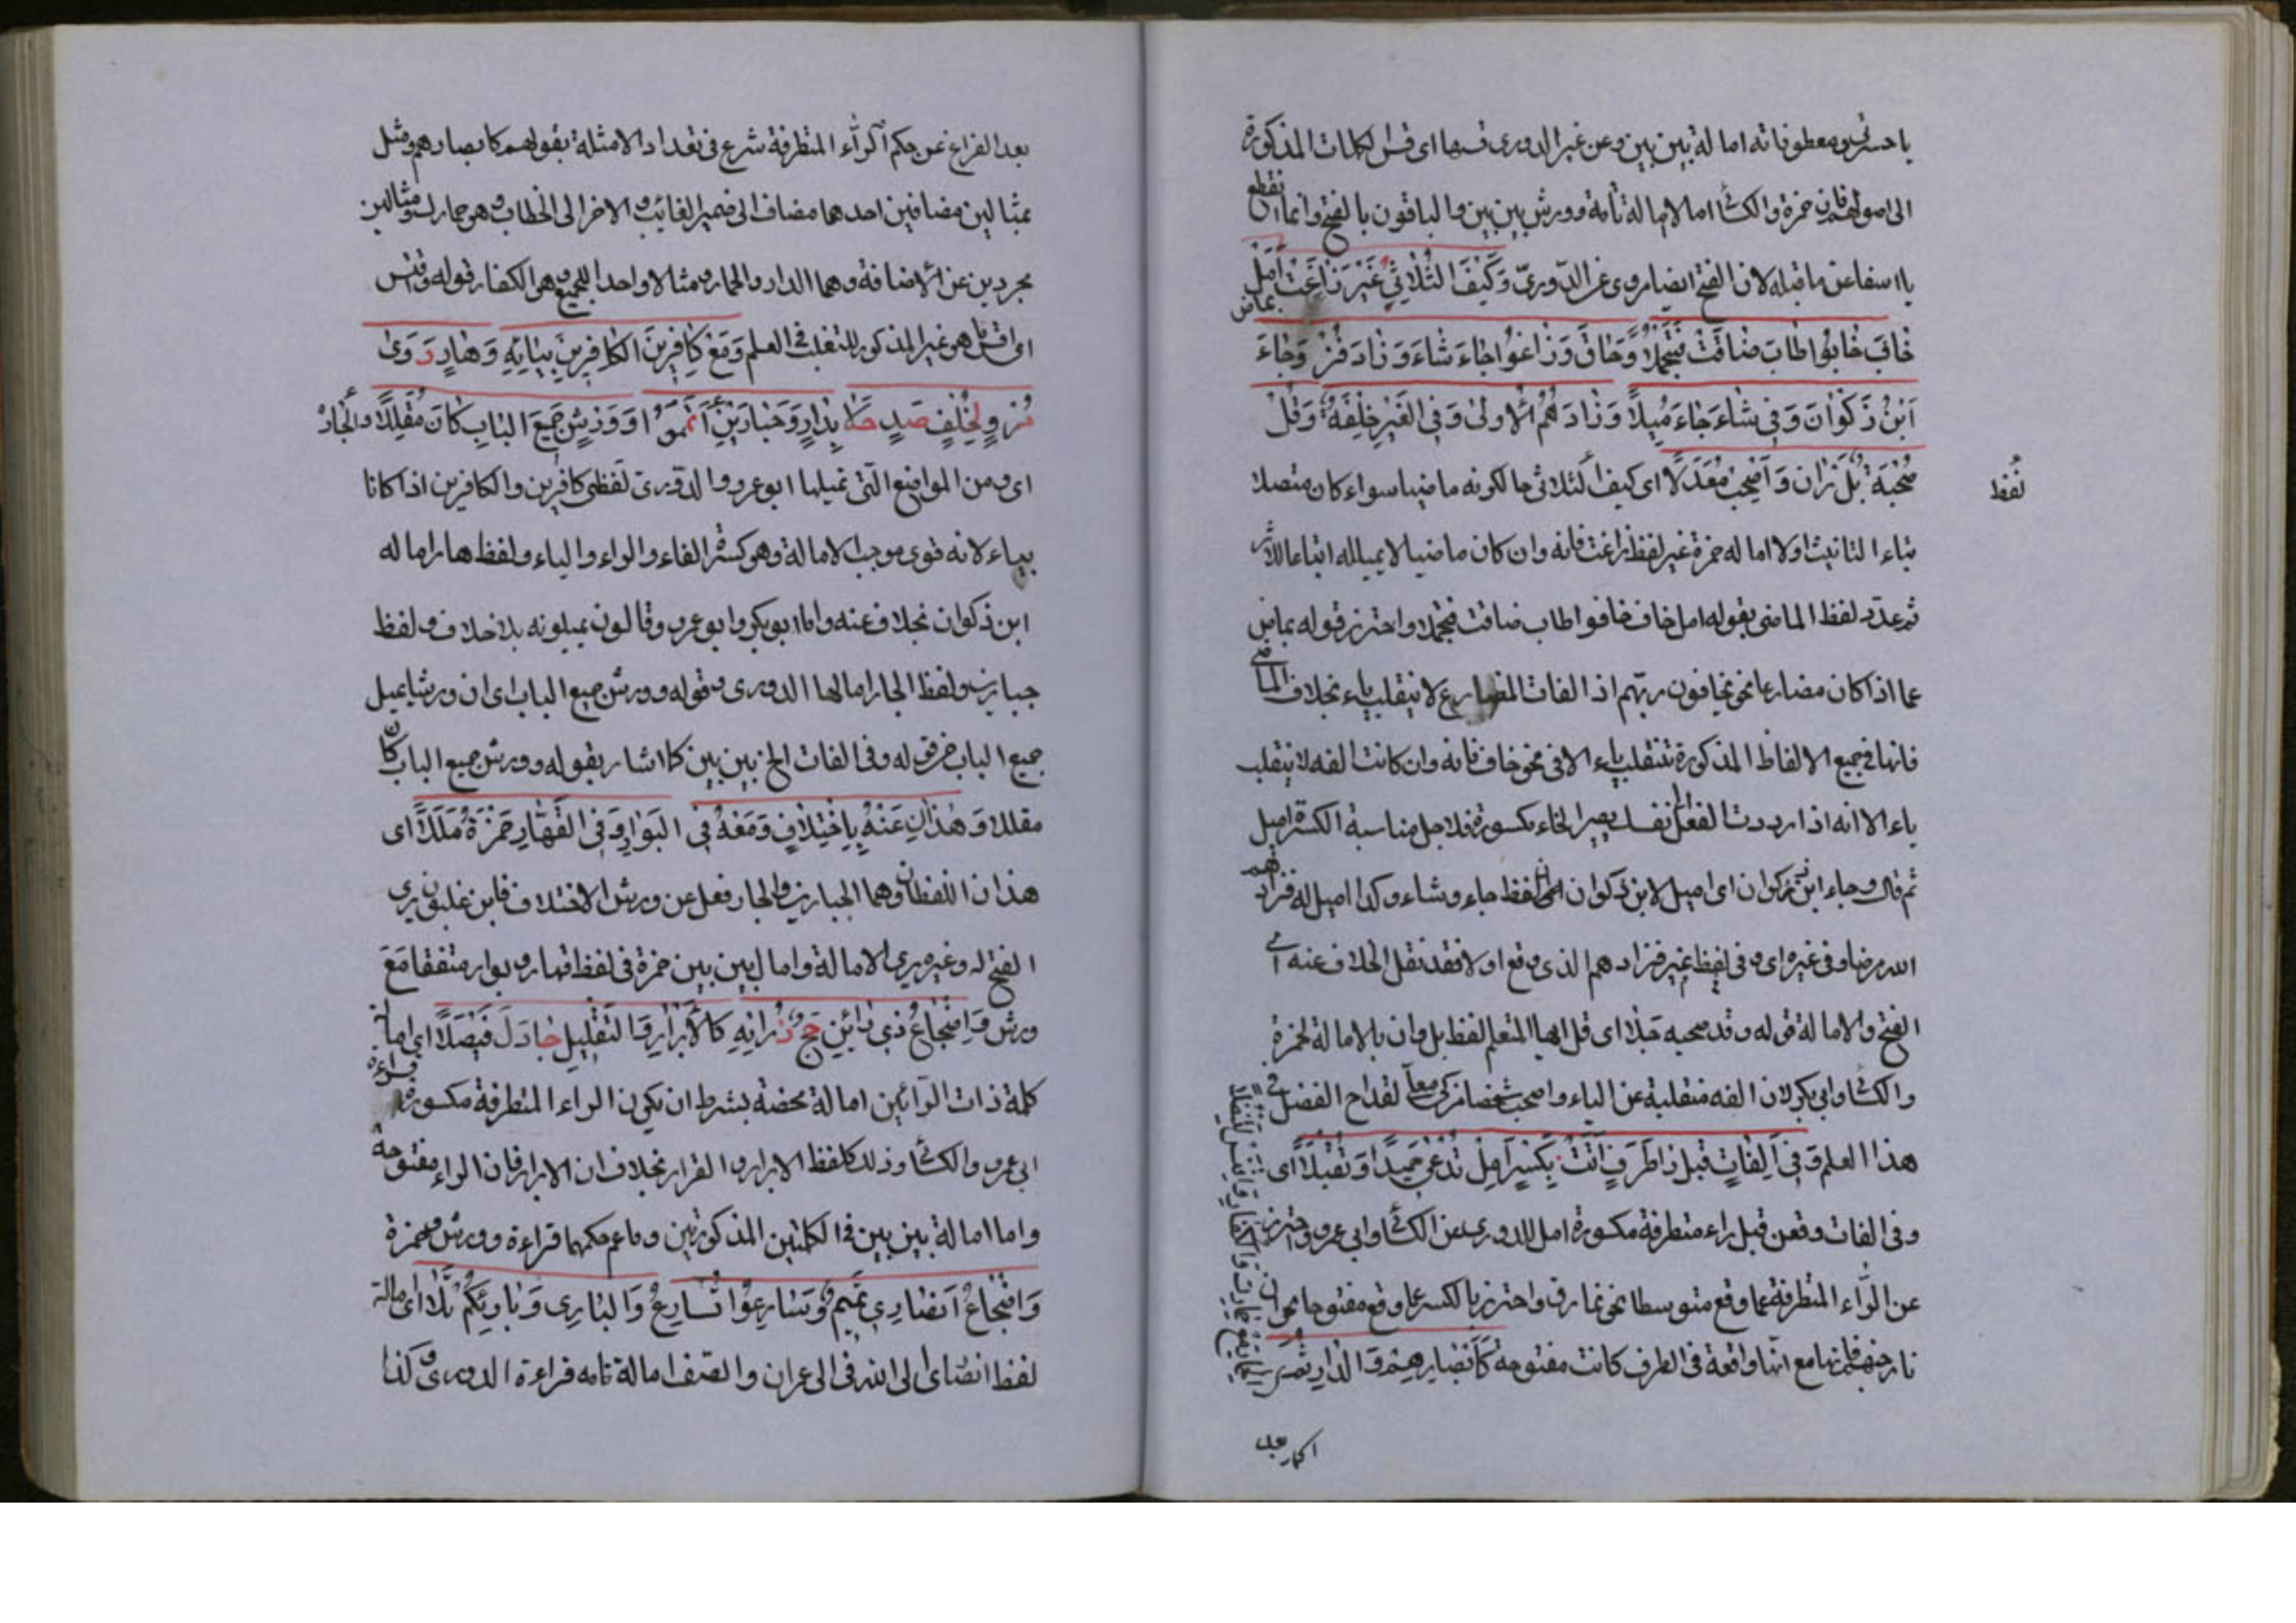 يا حسرتى ومعطوفاته امالة بين بين وعن غير الدورى قسها اى قس الكلمات المذكورة
الى اصولهم فان حمزة والكسائى امالا امالة تامة وورش بين بين والباقون بالفتح وانما انقطع
يا اسفا عن ما قبله لان الفتح ايضا روى عن الدّورىّ وَكَيْفَ الثُّلَاثِي غَيْرَ زَاغَتْ اَمِلْ بماض
خَابَ خَافُوا طَابَ ضَاقَتْ فَتُجْمِلَا وَحَاقَ وَزَاغُوا جَاءَ شَاءَ وَزَادَ فُزْ وَجَاءَ
اَبْنُ ذَكْوَانَ وَفِى شَاءَ جَاءَ مُيِّلَا وَزَادَهُمُ الْاُولَىٰ وَفِى الْغَيْرِ خُلْفُهُ وَقُلْ
صُحْبَةٌ بَلْ رَانَ وَاَصْحَبْ مُعَدَّلَا اى كيف الثلاثى حالكونه ماضيا سواء كان متصلا
بتاء التانيث اولا اماله حمزة غير لفظ زاغت فانه وان كان ماضيا لا يميله اتباعا للاثر
ثم عدّد لفظ الماضى بقوله امل خاف خافوا طاب ضاقت فتجملا واحترز بقوله بماض
عما اذا كان مضارعا نحو يخافون ربّهم اذ الفات المضارع لا ينقلب ياء بخلاف الماضى
فانها فى جميع الالفاظ المذكورة تنقلب ياء الا فى نحو خاف فانه وان كانت الفه لا ينقلب
ياء الا انه اذا رددت الفعل الى نفسك يصير الخاء مكسورة فلاجل مناسبة الكسرة اميل
ثم قال وجاء ابن ذكوان اى اميل لابن ذكوان الف لفظ جاء وشاء وكذا اميل له فزادهم
الله مرضا وفى غيره اى وفى لفظ غير فزادهم الذى وقع اولا فقد نقل الخلاف عنه اى
الفتح والامالة قوله وقل صحبة بل اى قل ايها المتعلم لفظ بل ران بالامالة لحمزة
والكسائى وابى بكر لان الفه منقلبة عن الياء واصحب شخصا مزكى معا لقداح الفضل فى
هذا العلم وَفِى اَلِفَاتٍ قَبْلَ رَا طَرَفٍ اَتَتْ بِكَسْرٍ اَمِلْ تُدْعَىٰ حَمِيدًا وَتُقْبَلَا اى
وفى الفات وقعن قبل راء متطرفة مكسورة امل للدورى عن الكسائى وابى عمرو واحترز
عن الرّاء المتطرفة عما وقع متوسطا نحو نمارق واحترز بالكسر عما وقع مفتوحا نحو ان
نار جهنم فانها مع انها واقعة فى الطرف كانت مفتوحة كَأَبْصَارِهِمْ وَالدَّارِ ثُمَّ
الحمار مع حمارك والكفار واقتس لتنضلا
نُفظ
اكار بعد
بعد الفراغ عن حكم الرّاء المتطرفة شرع فى تعداد الامثلة بقولهم كابصارهم ومثل
بمثالين مضافين احدهما مضاف الى ضمير الغائب والاخر الى الخطاب وهو حمارك ومثالين
مجردين عن الاضافة وهما الدار والحمار ومثالا واحدا للجميع وهو الكفار قوله واقتس
اى اقس ما هو غير المذكور لتغلب فى العلم وَمَعْ كَافِرِينَ الْكَافِرِينَ بِيَائِهِ وَهَارٍ رَوَىٰ
مُرْوٍ بِخُلْفٍ صَدٍ حَلَا بِدَارٍ وَجَبَّارِينَ تَمَّمُوا وَوَرْشٌ جَمِيعَ الْبَابِ كَانَ مُقَلِّلَا وَالْجَارِ
اى ومن المواضع الّتى تميلها ابو عمرو والدّورى لفظى كافرين والكافرين اذا كانا
بياء لانه قوى موجب الامالة وهو كسرة الفاء والراء والياء ولفظ هار اماله
ابن ذكوان بخلاف عنه واما ابو بكر وابو عمرو وقالون يميلونه بلا خلاف ولفظ
جبارين ولفظ الجار امالها الدورى وقوله وورش جميع الباب اى ان ورشا يميل
جميع الباب من قوله وفى الفات الخ بين بين كما اشار بقوله وورش جميع الباب كان
مقللا وَهٰذَانِ عَنْهُ بِاِخْتِلَافٍ وَمَعْهُ فِى الْبَوَارِ وَفِى الْقَهَّارِ حَمْزَةُ قَلَّلَا اى
هذان اللفظان وهما الجبارين والجار فعل عن ورش الاختلاف فابن غلبون يرى
الفتح له وغيره يرى الامالة وامال بين بين حمزة فى لفظ قهار وبوار متفقا مَعَ
ورش وَاِضْجَاعُ ذِى رَائَيْنِ حَجَّ رُوَاتُهُ كَالْاَبْرَارِ وَالتَّقْلِيلُ جَادَلَ فَيْصَلَا اى امالة
كلمة ذات الرّائين امالة محضة بشرط ان يكون الراء المتطرفة مكسورة قراءة
ابى عمرو والكسائى وذلك كلفظ الابرار والقرار بخلاف ان الابرار فان الراء مفتوحة
واما امالة بين بين فى الكلمتين المذكورتين وما عم حكمهما قراءة وورش وحمزة
وَاِضْجَاعُ اَنْصَارِى تَمِيمٌ وَسَارِعُوا نُسَارِعُ وَالْبَارِى وَبَارِئِكُمْ تَلَا اى امالة
لفظ انصارى الى الله فى ال عمران والصّف امالة تامه قراءة الدورى وكذا